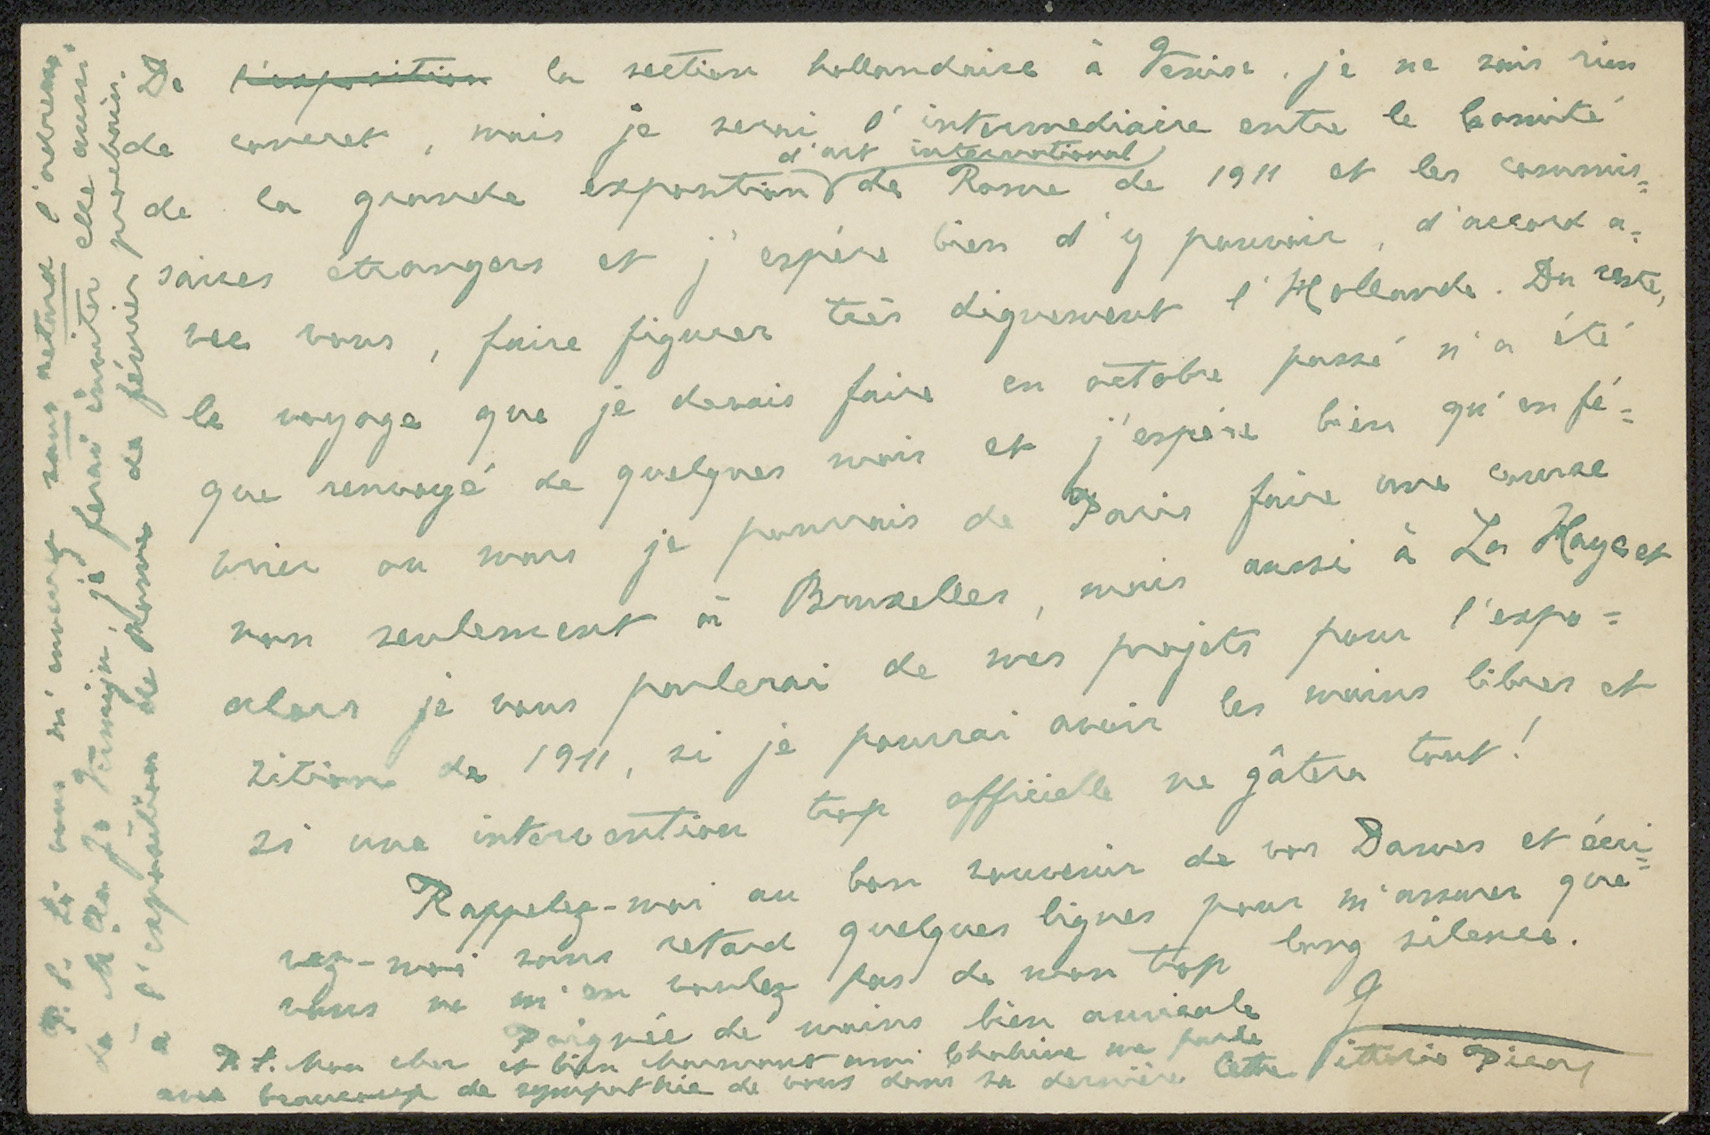 De l'exposition la section hollandaise à Venise, je ne sais rien
de concret, mais je serai l'intermediaire entre le Comité
d'art international
de la grande exposition de Rome de 1911 et les commis=
saires étrangers et j'espére bien d'y pouvoir, d'accord a=
vec vous, faire figurer très dignement l'Hollande. Du reste,
le voyage que je devais faire en octobre passé n'a été
que renvoyé de quelques mois et j'espére bien qu'en fé=
vrier ou mars je pourrais de Paris faire une course
non seulement à Bruxelles, mais aussi à La Haye et
alors je vous parlerai de mes projets pour l'expo=
sition de 1911, si je pourrai avoir les mains libres et
si une intervention trop officielle ne gâtera tout!
Rappelez-moi au bon souvenir de vos Dames et écri=
vez-moi sans retard quelques lignes pour m'assurer que
vous ne m'en voulez pas de mon trop long silence.
Poignée de mains bien amicale
Vittorio Pica
P.S. Mon cher et bien charmant ami Chahine me parle
avec beaucoup de sympathie de vous dans sa dernière lettre
P.S. Si vous m'envoyez sans retard l'adresse
de M.lla Jo Tumijn, je ferai inviter elle aussi
à l'exposition de Rome de février prochain.